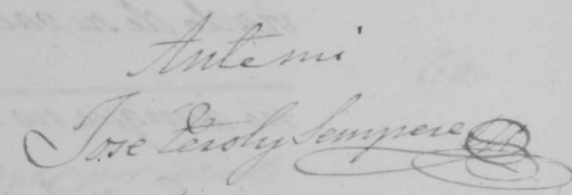 Ante mi
Jose Peroly Sempere